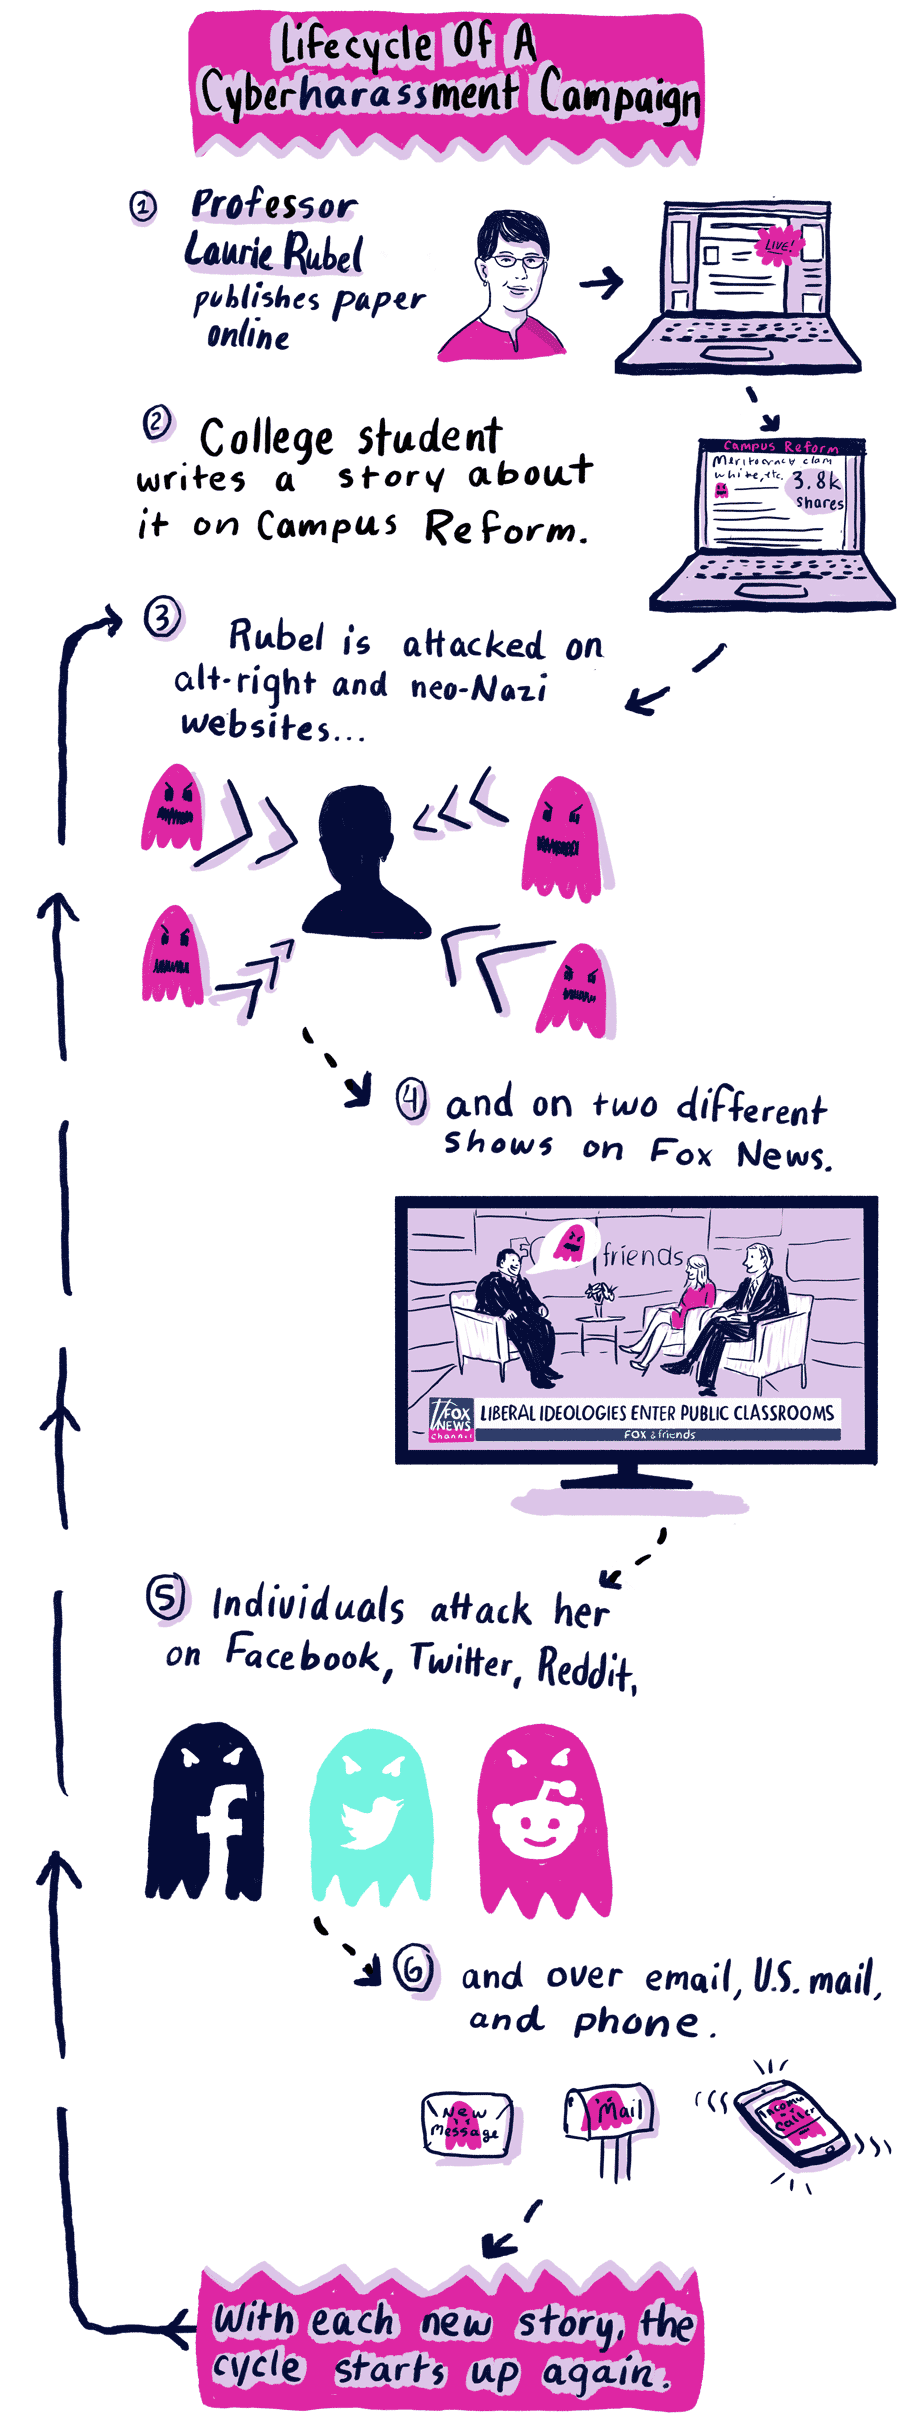 Lifecycle Of A
Cyberharassment Campaign
1 Professor
Laurie Rubel
publishes paper
online
LIVE!
2 College student
writes a story about
it on Campus Reform.
Campus Reform
Meritocracy
white, etc.
3.8k
shares
3 Rubel is attacked on
alt-right and neo-Nazi
websites...
4 and on two different
shows on Fox News.
friends
FOX
NEWS
channel
LIBERAL IDEOLOGIES ENTER PUBLIC CLASSROOMS
FOX & friends
5 Individuals attack her
on Facebook, Twitter, Reddit,
6 and over email, U.S. mail,
and phone.
New
Message
Mail
Caller
With each new story, the
cycle starts up again.